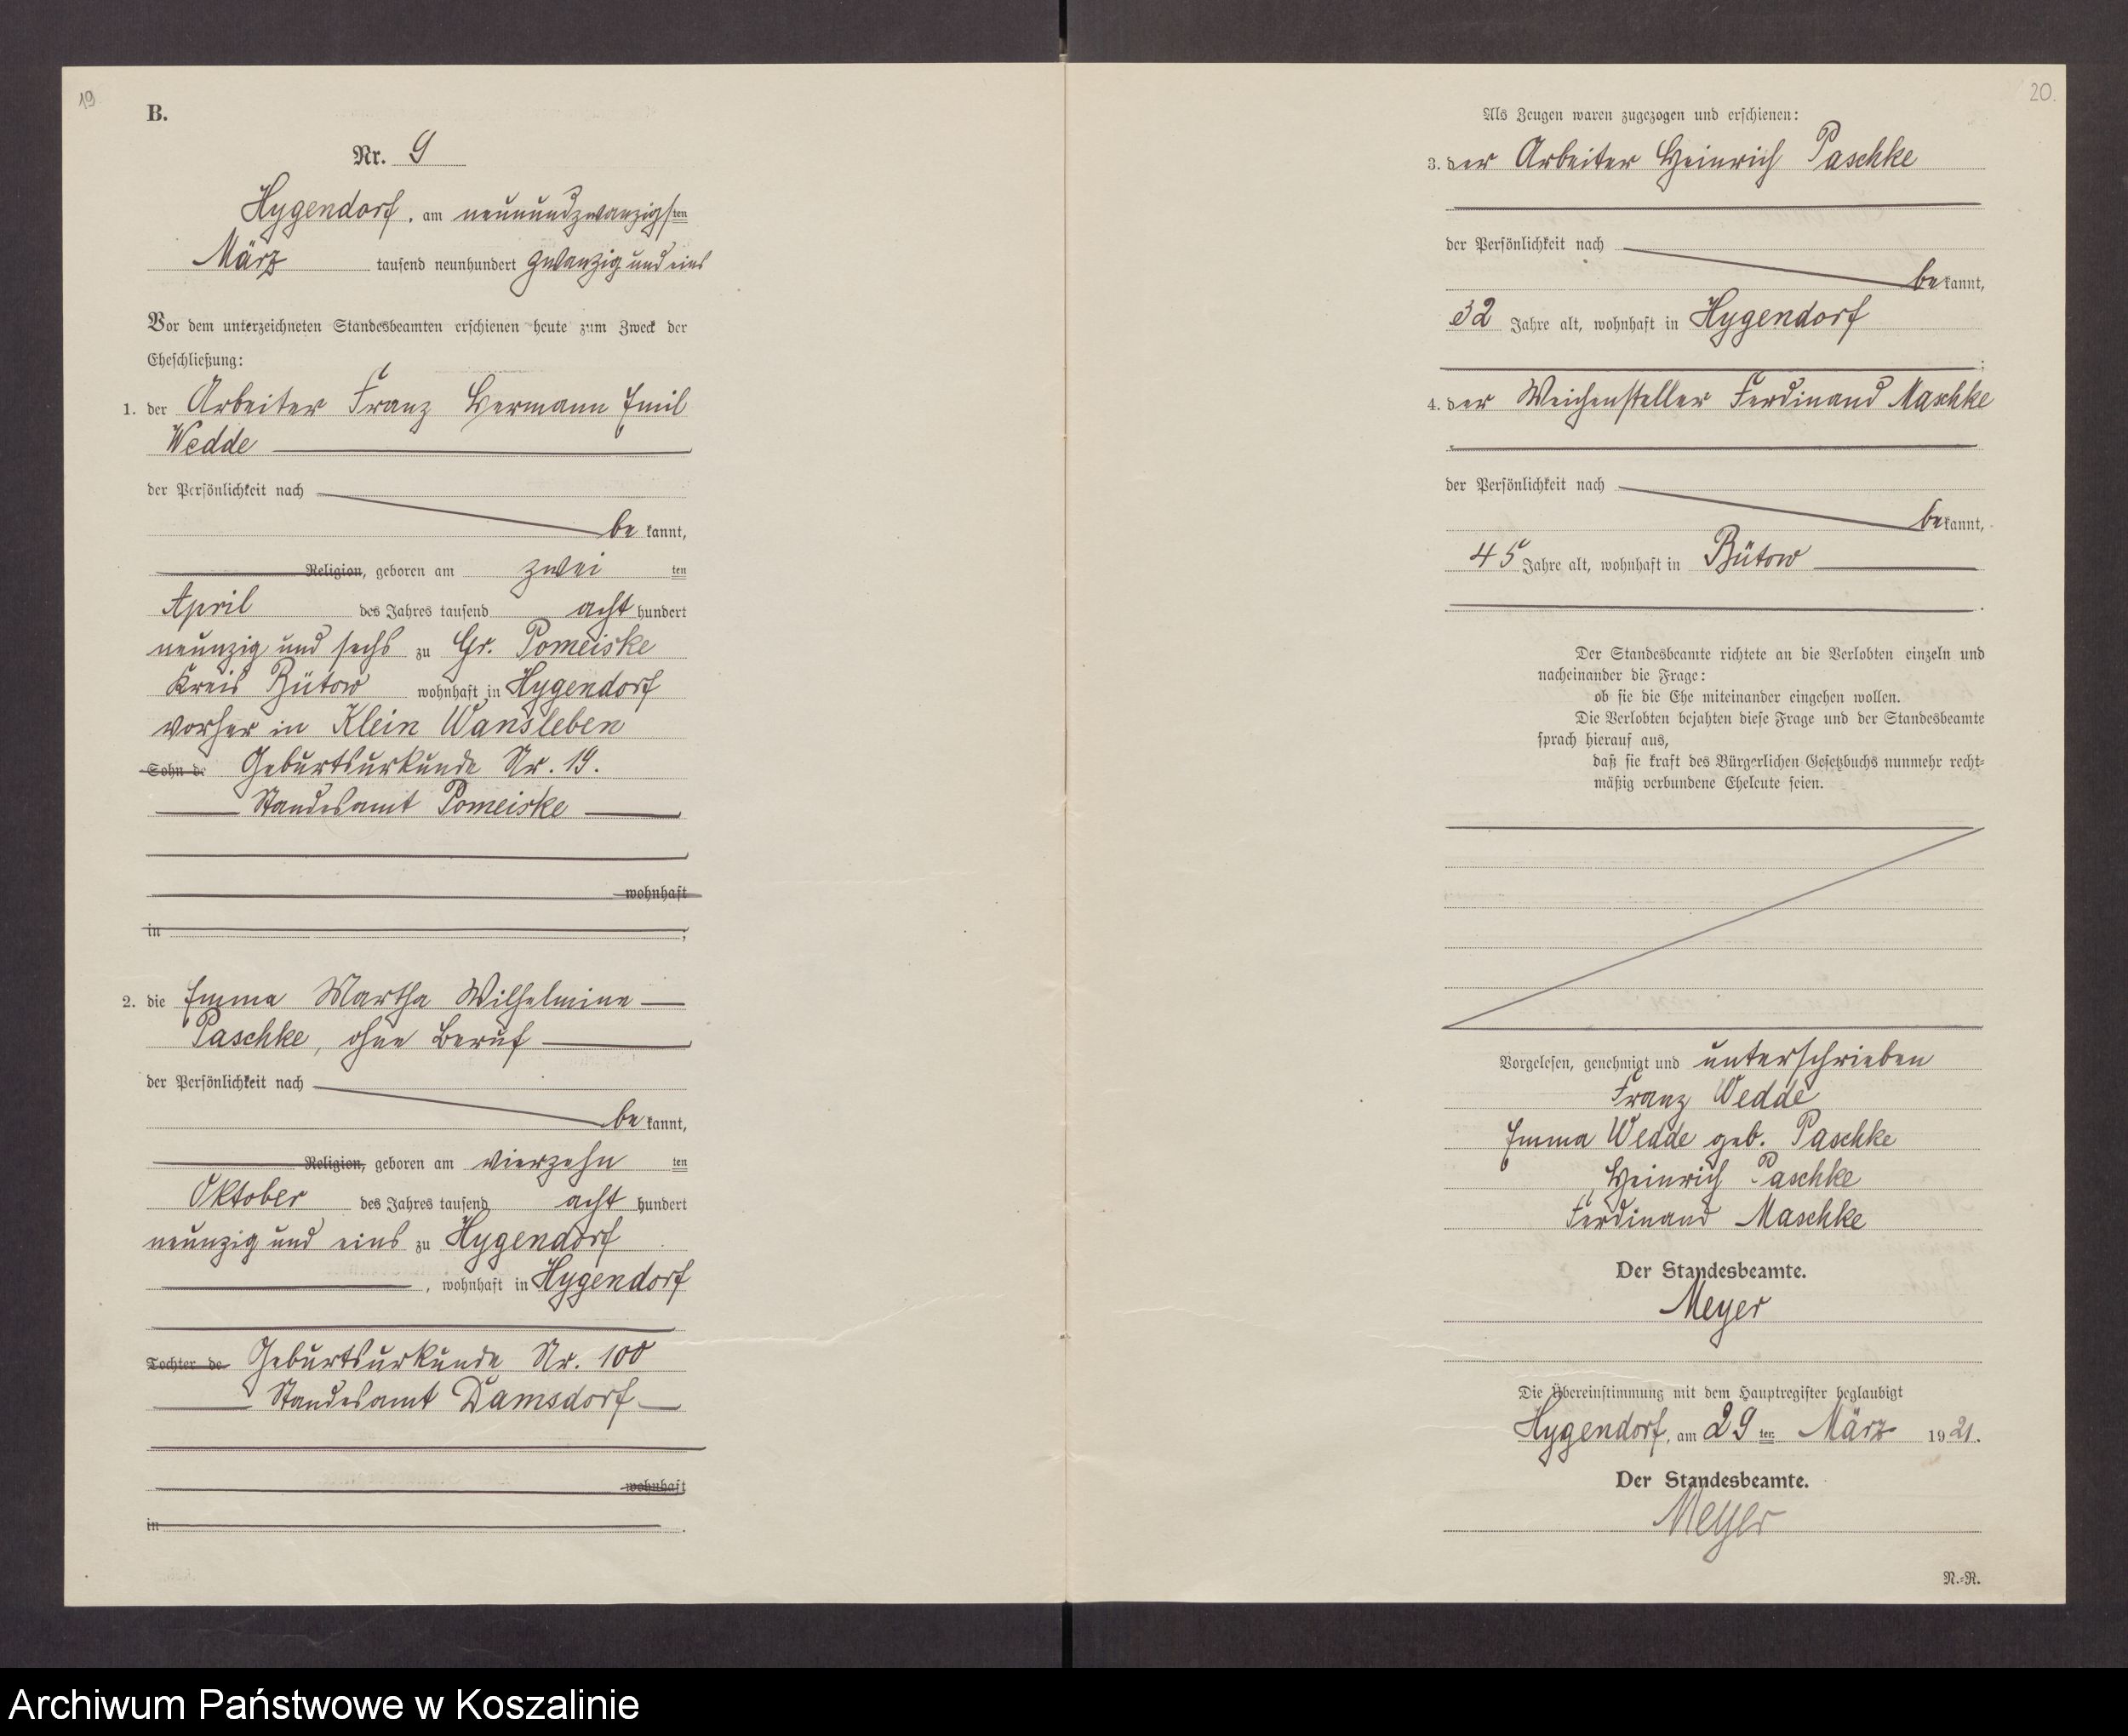 19
B.
Nr. 9
Hygendorf, am neunundzwanzigsten
März tausend neunhundert zwanzig und eins
Vor dem unterzeichneten Standesbeamten erschienen heute zum Zweck der
Eheschließung:
1. der Arbeiter Franz Hermann Emil
Wedde
der Persönlichkeit nach
be kannt,
Religion, geboren am zwei ten
April des Jahres tausend acht hundert
neunzig und sechs zu Gr. Pomeiske
Kreis Bütow wohnhaft in Hygendorf
vorher in Klein Wansleben
Sohn de Geburtsurkunde Nr. 19.
Standesamt Pomeiske
wohnhaft
in ;
2. die Emma Martha Wilhelmine
Paschke, ohne Beruf
der Persönlichkeit nach
be kannt,
Religion, geboren am vierzehn ten
Oktober des Jahres tausend acht hundert
neunzig und eins zu Hygendorf
, wohnhaft in Hygendorf
Tochter de Geburtsurkunde Nr. 100
Standesamt Damsdorf
wohnhaft
in .
20.
Als Zeugen waren zugezogen und erschienen:
3. der Arbeiter Heinrich Paschke
der Persönlichkeit nach
be kannt,
32 Jahre alt, wohnhaft in Hygendorf
;
4. der Weichensteller Ferdinand Maschke
der Persönlichkeit nach
be kannt,
45 Jahre alt, wohnhaft in Bütow
.
Der Standesbeamte richtete an die Verlobten einzeln und
nacheinander die Frage:
ob sie die Ehe miteinander eingehen wollen.
Die Verlobten bejahten diese Frage und der Standesbeamte
sprach hierauf aus,
daß sie kraft des Bürgerlichen Gesetzbuchs nunmehr recht-
mäßig verbundene Eheleute seien.
Vorgelesen, genehmigt und unterschrieben
Franz Wedde
Emma Wedde geb. Paschke
Heinrich Paschke
Ferdinand Maschke
Der Standesbeamte.
Meyer
Die Übereinstimmung mit dem Hauptregister beglaubigt
Hygendorf, am 29 ten März 1921.
Der Standesbeamte.
Meyer
N.-R.
Archiwum Państwowe w Koszalinie